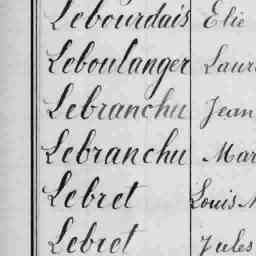 Lebourdais Elie
Leboulanger
Lebranchu Jean
Lebranchu
Lebret Louis
Lebret Jules